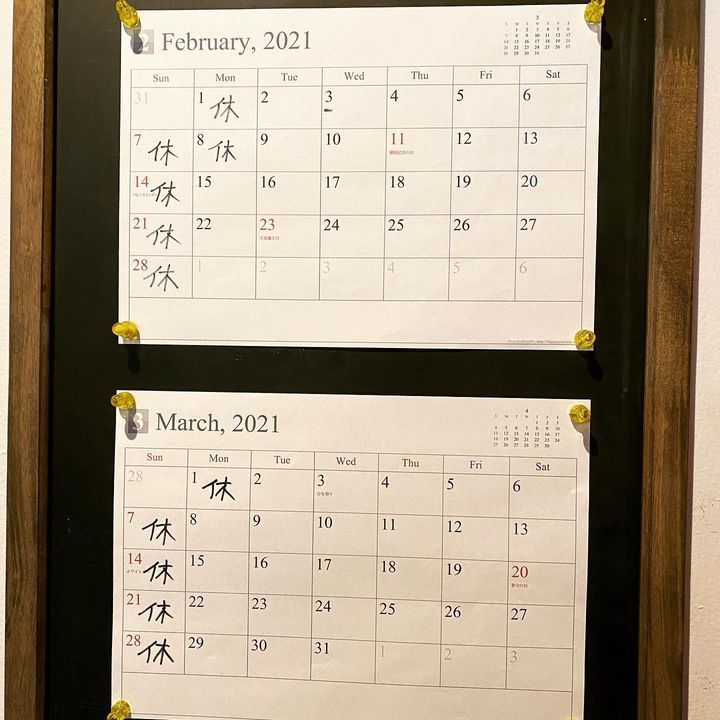 2 February, 2021
3
Sun Mon Tue Wed Thu Fri Sat
31 1 休 2 3 4 5 6
7 休 8 休 9 10 11 12 13
建国記念の日
14 休 15 16 17 18 19 20
21 休 22 23 24 25 26 27
天皇誕生日
28 休 1 2 3 4 5 6
3 March, 2021
4
Sun Mon Tue Wed Thu Fri Sat
28 1 休 2 3 4 5 6
ひな祭り
7 休 8 9 10 11 12 13
14 休 15 16 17 18 19 20
ホワイト
春分の日
21 休 22 23 24 25 26 27
28 休 29 30 31 1 2 3